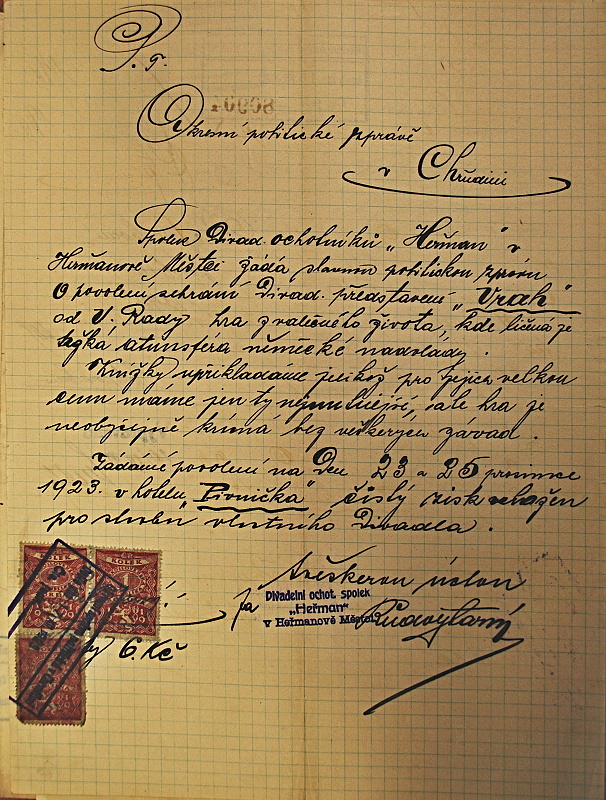 P. T.
40908
Okresní politické zprávě
v Chrudimi
Spolek Divad. ochotníků „Heřman" v
Heřmanově Městci žádá slavnou politickou zprávu
o povolení sehrání Divad. představení „Vrah"
od V. Rady hra z válečného života, kde líčena je
těžká atmosféra německé nadvlády.
Knížky nepřikládáme jelikož pro jejich velkou
cenu máme jen ty nejnutnější, ale hra je
neobyčejně krásná bez veškerých závad.
Žádáme povolení na Den 23 a 25 prosince
1923. v hotelu „Pivnička" čistý zisk vložen
pro stavbu vlastního Divadla.
S veškerou úctou
Za
Divadelní ochot. spolek
„Heřman"
v Heřmanově Městci
KOLEK
KOLEK
6 Kč